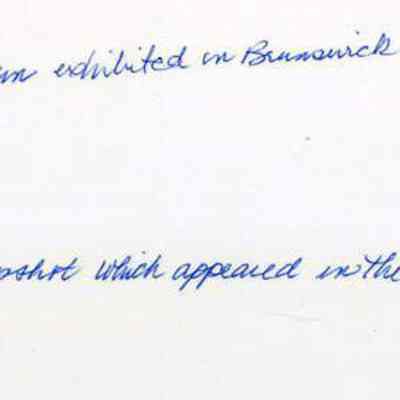 exhibited in Brunswick
pshot which appeared in the